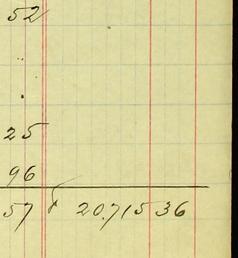 52
25
96
57 20.715 36